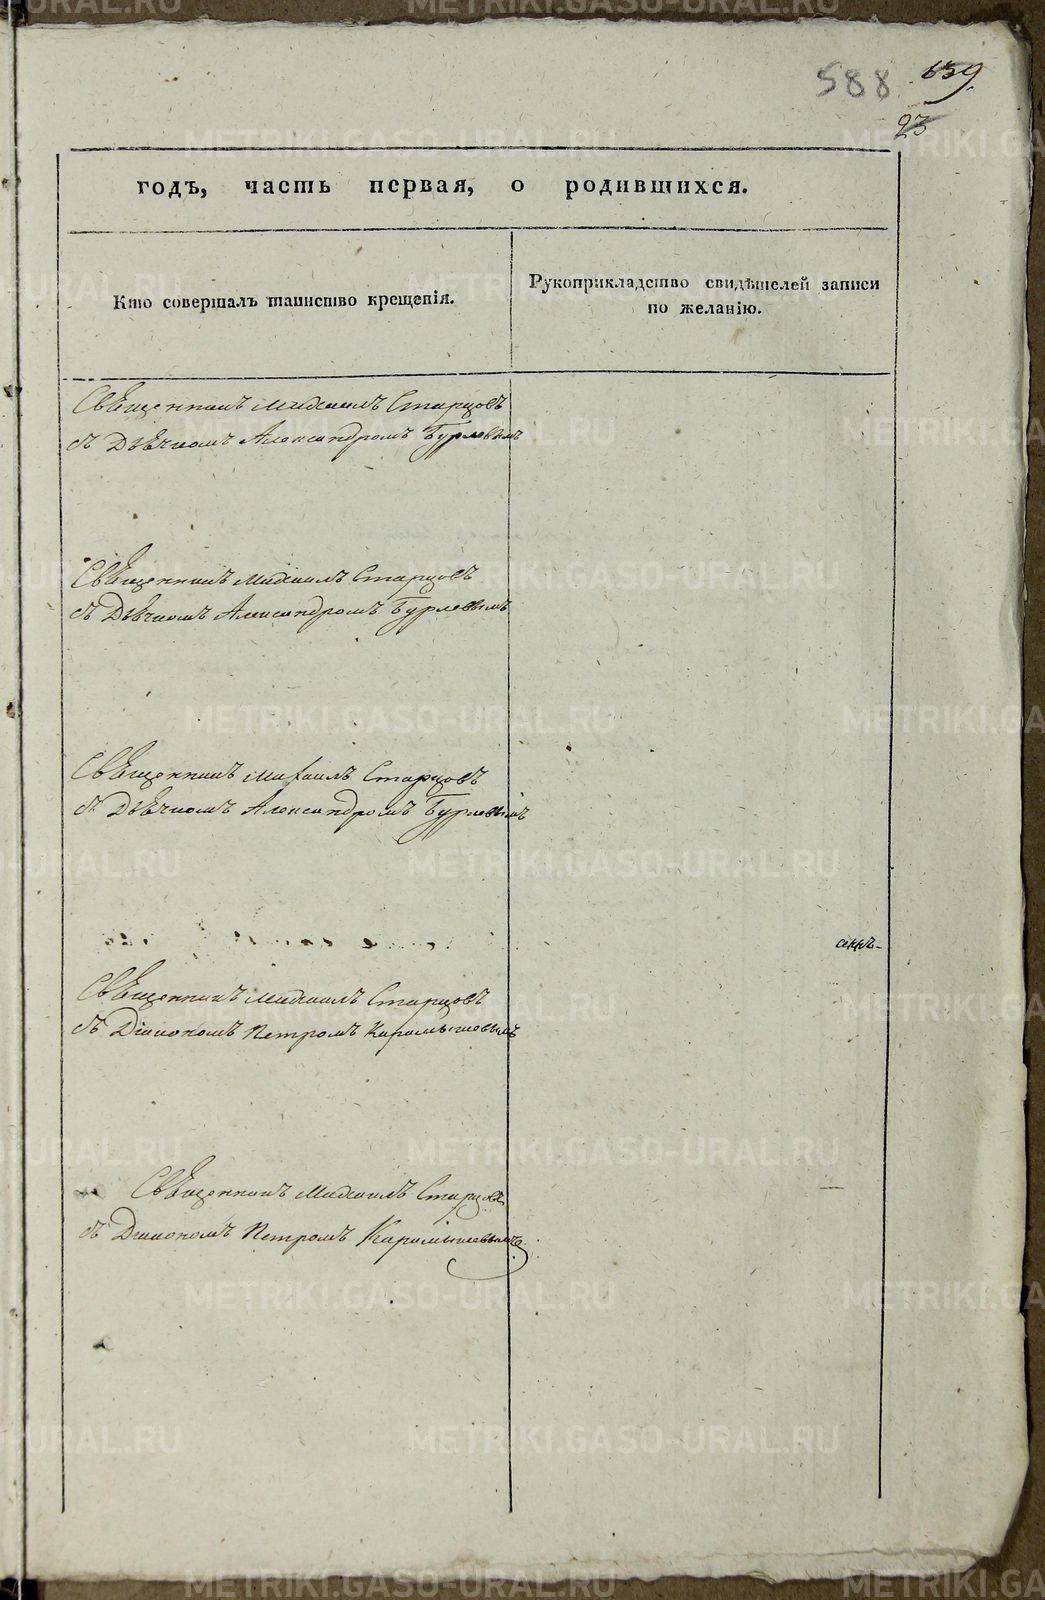 588 659.
23
годъ, часть первая, о родившихся.
Кто совершалъ таинство крещенія.
Рукоприкладство свидѣтелей записи
по желанію.
Священникъ Михаилъ Старцовъ
съ Дьячкомъ Александромъ Бурловымъ
Священникъ Михаилъ Старцовъ
съ Дьячкомъ Александромъ Бурловымъ
Священникъ Михаилъ Старцовъ
съ Дьячкомъ Александромъ Бурловымъ
Священникъ Михаилъ Старцовъ
съ Діакономъ Петромъ Карамышовымъ
Священникъ Михаилъ Старцовъ
съ Діакономъ Петромъ Карамышевымъ
METRIKI.GASO-URAL.RU